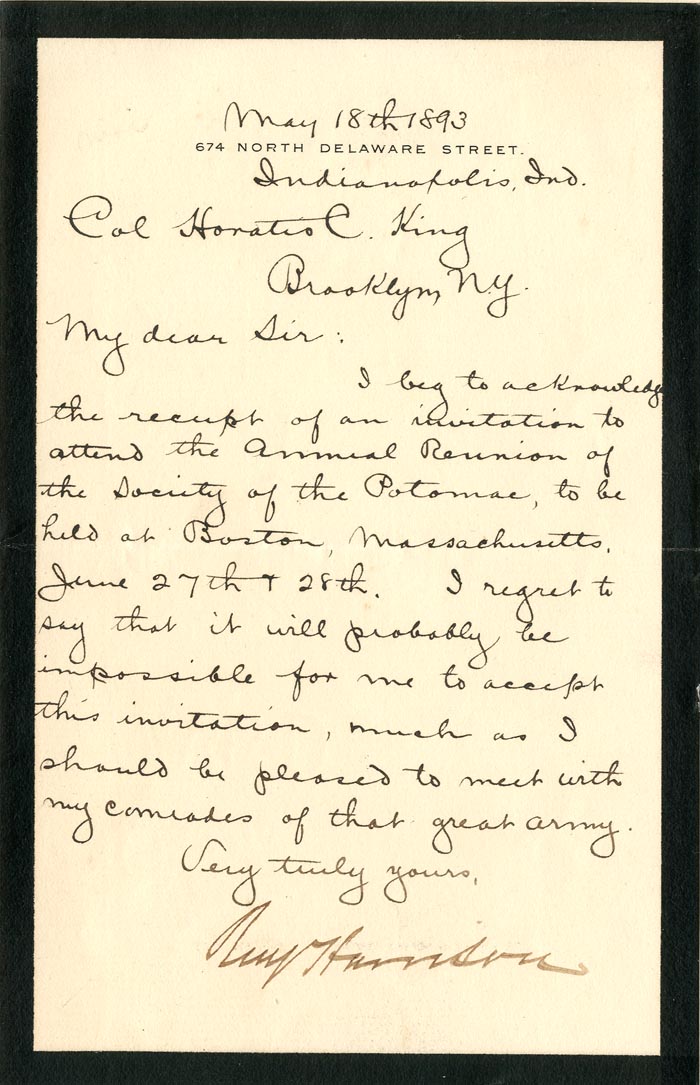 May 18th 1893
674 NORTH DELAWARE STREET.
Indianapolis, Ind.
Col Horatio C. King
Brooklyn, N.Y.
My dear Sir:
I beg to acknowledge
the receipt of an invitation to
attend the Annual Reunion of
the Society of the Potomac, to be
held at Boston, Massachusetts,
June 27th & 28th. I regret to
say that it will probably be
impossible for me to accept
this invitation, much as I
should be pleased to meet with
my comrades of that great army.
Very truly yours,
Benj Harrison